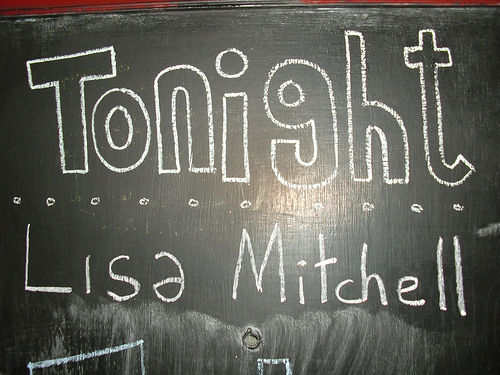 Tonight
Lisa Mitchell